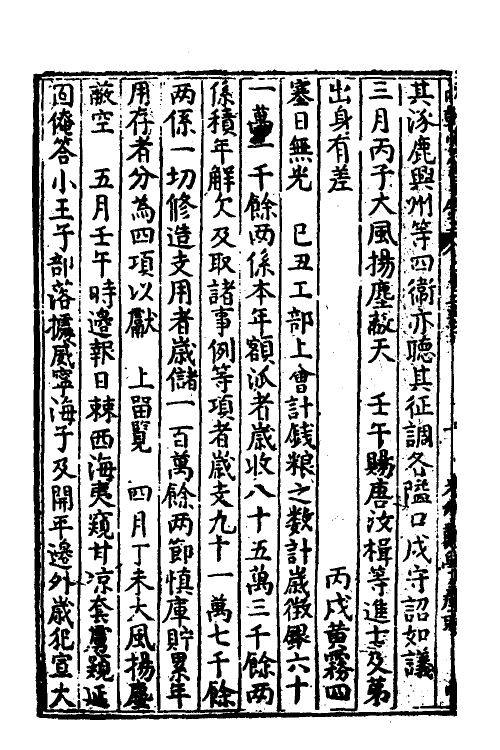 其涿鹿興州等四衛亦聽其征調各隘口戍守詔如議
三月丙子大風揚塵蔽天　壬午賜唐汝楫等進士及第
出身有差　丙戌黃霧四
塞日無光　已丑工部上會計錢粮之數計歲徵銀六十
一萬一千餘兩係本年額泒者歲收八十五萬三千餘兩
係積年解欠及取諸事例等項者歲支九十一萬七千餘
兩係一切修造支用者歲儲一百萬餘兩節慎庫貯累年
用存者分為四項以獻　上畱覽　四月丁未大風揚塵
蔽空　五月壬午時邊報日棘西海夷窺甘凉套虜窺延
固俺答小王子部落據威寧海子及開平邊外歲犯宣大